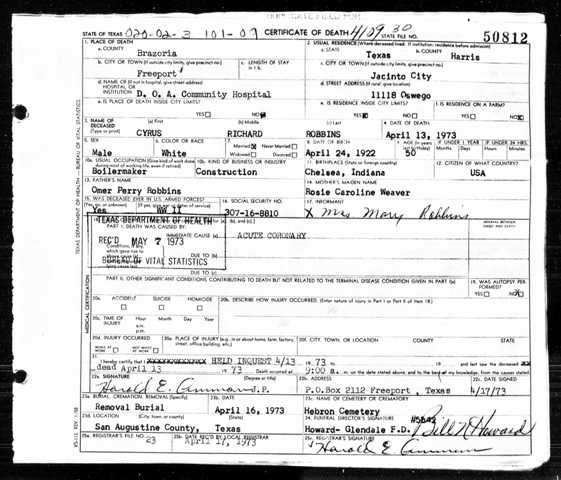 STATE OF TEXAS 020-02-3 101-07 CERTIFICATE OF DEATH 4/09 30 STATE FILE NO. 50812
1. PLACE OF DEATH
a. COUNTY
Brazoria
2. USUAL RESIDENCE (Where deceased lived. If institution: residence before admission)
a. STATE
Texas
b. COUNTY
Harris
b. CITY OR TOWN (If outside city limits, give precinct no.)
Freeport
c. LENGTH OF STAY
c. CITY OR TOWN (If outside city limits, give precinct no.)
Jacinto City
d. NAME OF (If not in hospital, give street address)
HOSPITAL OR
INSTITUTION
D. O. A. Community Hospital
d. STREET ADDRESS (If rural, give location)
11118 Oswego
e. IS PLACE OF DEATH INSIDE CITY LIMITS?
YES NO
e. IS RESIDENCE INSIDE CITY LIMITS?
YES NO
f. IS RESIDENCE ON A FARM?
YES NO
3. NAME OF
DECEASED
(Type or print)
(a) First
CYRUS
(b) Middle
RICHARD
(c) Last
ROBBINS
4. DATE OF DEATH
April 13, 1973
5. SEX
Male
6. COLOR OR RACE
White
7. Married Never Married
Widowed Divorced
8. DATE OF BIRTH
April 24, 1922
9. AGE (In years
last birthday)
50
IF UNDER 1 YEAR
Months Days
IF UNDER 24 HRS.
Hours Min.
10a. USUAL OCCUPATION (Give kind of work done
during most of working life, even if retired)
Boilermaker
10b. KIND OF BUSINESS OR INDUSTRY
Construction
11. BIRTHPLACE (State or foreign country)
Chelsea, Indiana
12. CITIZEN OF WHAT COUNTRY?
USA
13. FATHER'S NAME
Omer Perry Robbins
14. MOTHER'S MAIDEN NAME
Rosie Caroline Weaver
15. WAS DECEASED EVER IN U.S. ARMED FORCES?
(Yes, no, or unknown) (If yes, give war or dates of service)
Yes WW II
16. SOCIAL SECURITY NO.
307-16-8810
17. INFORMANT
X Mrs Mary Robbins
TEXAS DEPARTMENT OF HEALTH
REC'D MAY 7 1973
BUREAU OF VITAL STATISTICS
PART I. DEATH WAS CAUSED BY:
IMMEDIATE CAUSE (a)
ACUTE CORONARY
INTERVAL BETWEEN
ONSET AND DEATH
DUE TO (b)
DUE TO (c)
PART II. OTHER SIGNIFICANT CONDITIONS CONTRIBUTING TO DEATH BUT NOT RELATED TO THE TERMINAL DISEASE CONDITION GIVEN IN PART I(a)
19. WAS AUTOPSY PER-
FORMED?
YES NO
20a. ACCIDENT SUICIDE HOMICIDE
20b. DESCRIBE HOW INJURY OCCURRED. (Enter nature of injury in Part I or Part II of item 18.)
20c. TIME OF
INJURY
Hour Month Day Year
a.m.
p.m.
20d. INJURY OCCURRED
WHILE AT WORK NOT WHILE AT WORK
20e. PLACE OF INJURY (e.g., in or about home, farm, factory,
street, office building, etc.)
20f. CITY, TOWN, OR LOCATION COUNTY STATE
21. I hereby certify that HELD INQUEST 4/13 1973 to 19 and last saw the deceased
dead April 13 1973 Death occurred at 9:00 a.m. on the date stated above, and to the best of my knowledge, from the causes stated.
22a. SIGNATURE (Degree or title)
Harold E. Ammann J.P.
22b. ADDRESS
P.O.Box 2112 Freeport, Texas
22c. DATE SIGNED
4/17/73
23a. BURIAL, CREMATION, REMOVAL (Specify)
Removal Burial
23b. DATE
April 16, 1973
23c. NAME OF CEMETERY OR CREMATORY
Hebron Cemetery
23d. LOCATION (City, town, or county) (State)
San Augustine County, Texas
24. FUNERAL DIRECTOR'S SIGNATURE
#5642
Howard- Glendale F.D. Bill N Howard
25a. REGISTRAR'S FILE NO.
23
25b. DATE REC'D BY LOCAL REGISTRAR
April 17, 1973
25c. REGISTRAR'S SIGNATURE
Harold E Ammann
TEXAS DEPARTMENT OF HEALTH - BUREAU OF VITAL STATISTICS
MEDICAL CERTIFICATION